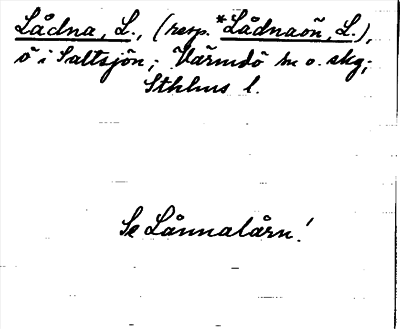 Lådna, L., (resp. *Lådnaön, L.),
ö i Saltsjön; Värmdö hd o. skg;
Sthlms l.
Se Lånnalårn!